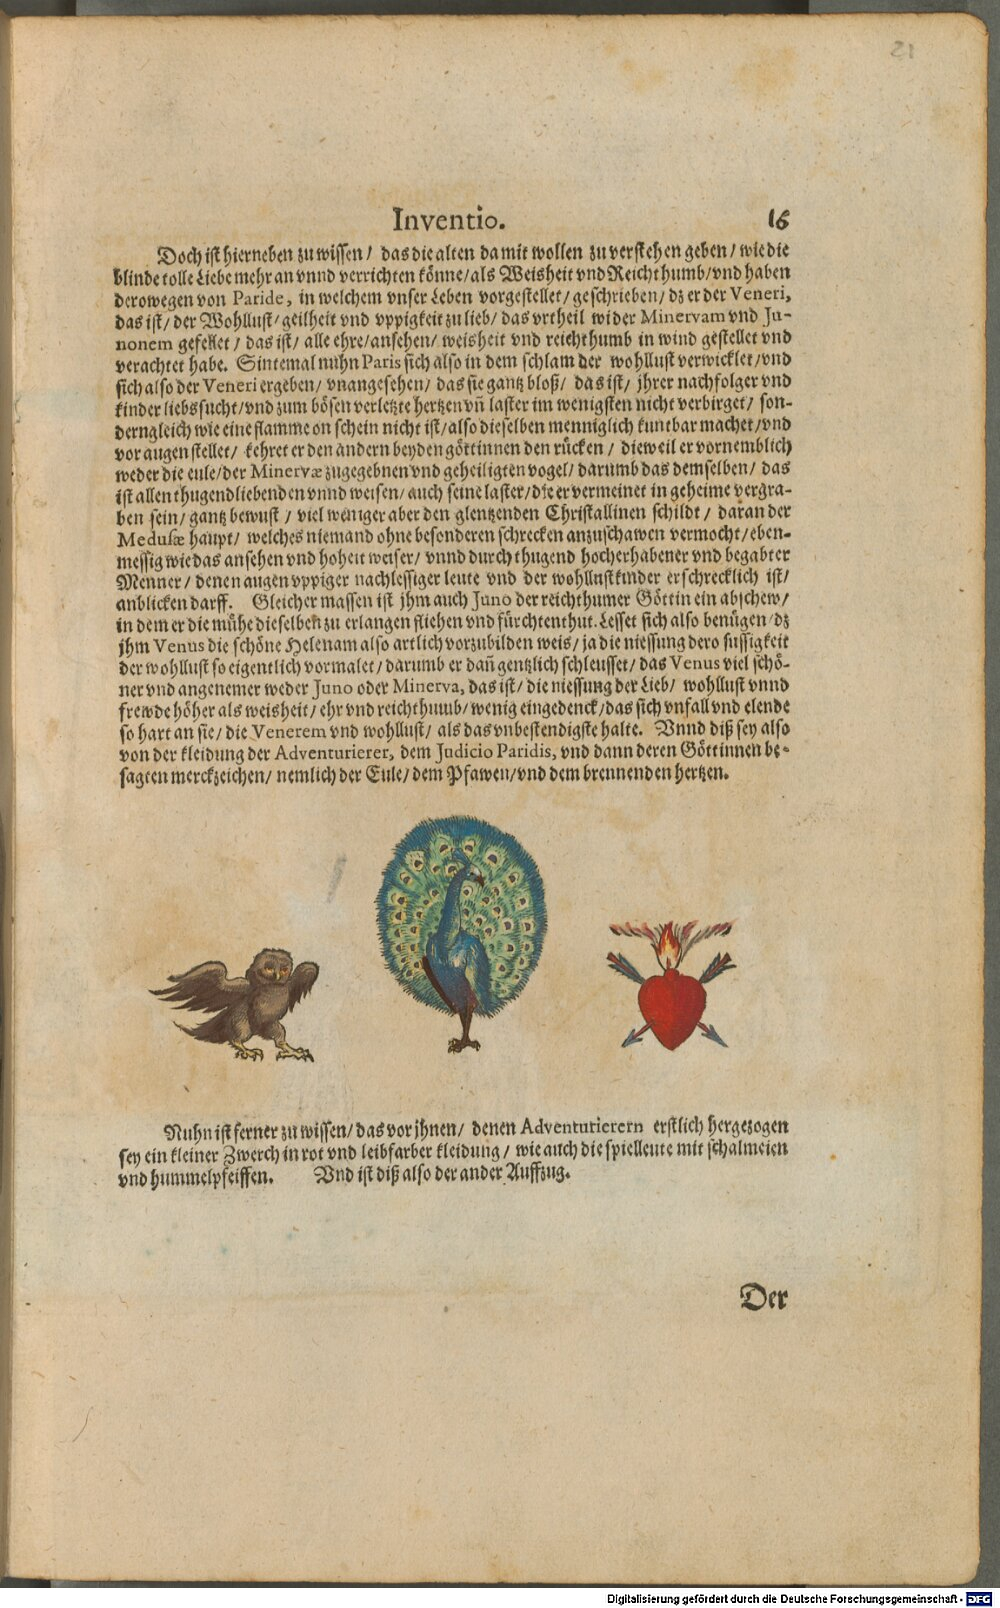 21
Inventio. 16
Doch ist hierneben zu wissen/ das die alten damit wollen zu verstehen geben/ wie die
blinde tolle Liebe mehr an vnnd verrichten könne/als Weisheit vnd Reichthumb/vnd haben
derowegen von Paride, in welchem vnser Leben vorgestellet/geschrieben/ dz er der Veneri,
das ist/ der Wohllust/geilheit vnd vppigkeit zu lieb/ das vrtheil wider Minervam vnd Ju-
nonem gefellet/ das ist/ alle ehre/ansehen/ weisheit vnd reichthumb in wind gestellet vnd
verachtet habe. Sintemal nuhn Paris sich also in dem schlam der wohllust verwicklet/vnd
sich also der Veneri ergeben/ vnangesehen/ das sie gantz bloß/ das ist/ jhrer nachfolger vnd
kinder liebssucht/vnd zum bösen verletzte hertzen vñ laster im wenigsten nicht verbirget/ son-
derngleich wie eine flamme on schein nicht ist/also dieselben menniglich kuntbar machet/vnd
vor augen stellet/ kehret er den andern beyden göttinnen den rücken/ dieweil er vornemblich
weder die eule/der Minervæ zugegebnen vnd geheiligten vogel/ darumb das demselben/ das
ist allen thugendliebenden vnnd weisen/ auch seine laster/die er vermeinet in geheime vergra-
ben sein/ gantz bewust/ viel weniger aber den glentzenden Christallinen schildt/ daran der
Medusæ haupt/ welches niemand ohne besonderen schrecken anzuschawen vermocht/eben-
messig wie das ansehen vnd hoheit weiser/ vnnd durch thugend hocherhabener vnd begabter
Menner/ denen augen vppiger nachlessiger leute vnd der wohllustkinder erschrecklich ist/
anblicken darff. Gleicher massen ist jhm auch Juno der reichthumer Göttin ein abschew/
in dem er die mühe dieselben zu erlangen fliehen vnd fürchten thut. Lesset sich also benügen/dz
jhm Venus die schöne Helenam also artlich vorzubilden weis/ ja die niessung dero sussigkeit
der wohllust so eigentlich vormalet/ darumb er dañ gentzlich schleusset/ das Venus viel schö-
ner vnd angenemer weder Juno oder Minerva, das ist/ die niessung der Lieb/ wohllust vnnd
frewde höher als weisheit/ ehr vnd reichthumb/wenig eingedenck/das sich vnfall vnd elende
so hart an sie/ die Venerem vnd wohllust/ als das vnbestendigste halte. Vnnd diß sey also
von der kleidung der Adventurierer, dem Judicio Paridis, vnd dann deren Göttinnen be-
sagten merckzeichen/ nemlich der Eule/ dem Pfawen/vnd dem brennenden hertzen.
Nuhn ist ferner zu wissen/ das vor jhnen/ denen Adventurierern erstlich hergezogen
sey ein kleiner Zwerch in rot vnd leibfarber kleidung/ wie auch die spielleute mit schalmeien
vnd hummelpfeiffen. Vnd ist diß also der ander Auffzug.
Der
Digitalisierung gefördert durch die Deutsche Forschungsgemeinschaft - DFG